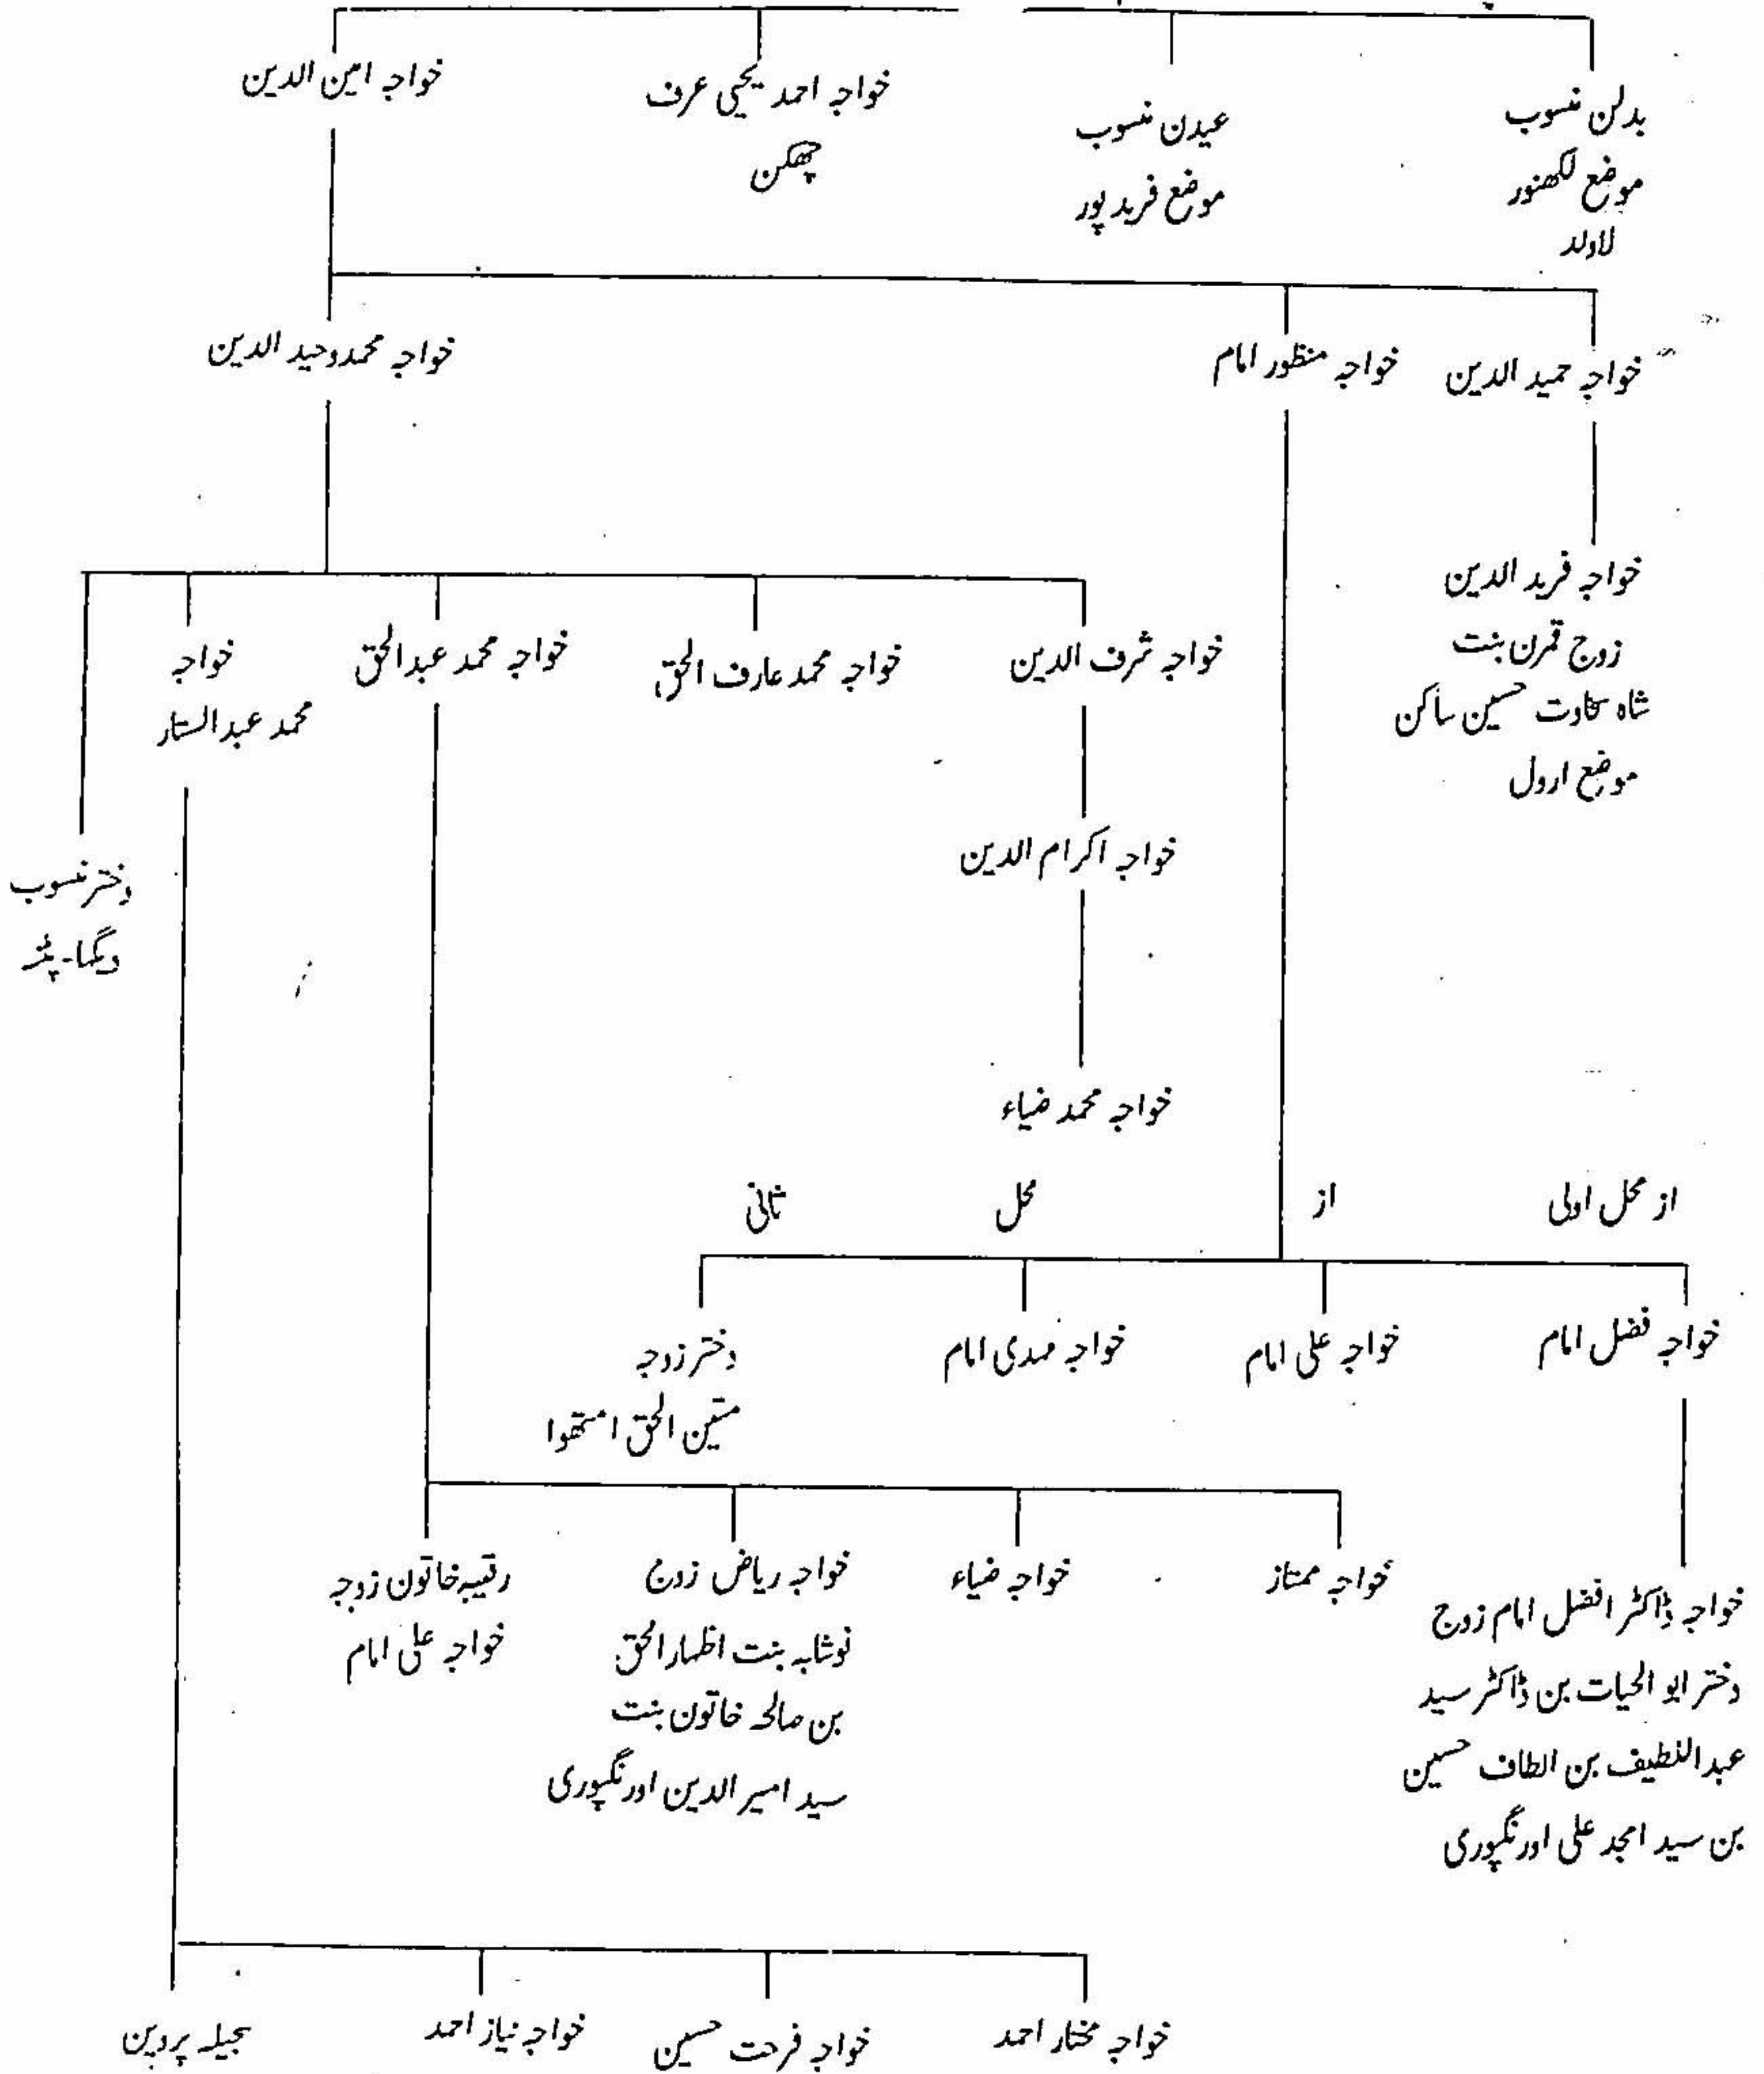 بدلن منسوب
موضع لکھنور
لاولد
عیدن منسوب
موضع فرید پور
خواجہ احمد یحیٰی عرف
چھکن
خواجہ امین الدین
خواجہ حمید الدین
خواجہ منظور امام
خواجہ محمد وحید الدین
خواجہ فرید الدین
زوج قمرن بنت
شاہ سخاوت حسین ساکن
موضع ارول
خواجہ شرف الدین
خواجہ محمد عارف الحق
خواجہ محمد عبدالحق
خواجہ
محمد عبدالستار
دختر منسوب
ڈیگھا-پٹنہ
خواجہ اکرام الدین
خواجہ محمد ضیاء
از محل اولی
از محل ثانی
خواجہ فضل امام
خواجہ علی امام
خواجہ مہدی امام
دختر زوجہ
متین الحق امتھوا
خواجہ ڈاکٹر افضل امام زوج
دختر ابو الحیات بن ڈاکٹر سید
عبداللطیف بن الطاف حسین
بن سید امجد علی اورنگپوری
خواجہ ممتاز
خواجہ ضیاء
خواجہ ریاض زوج
نوشابہ بنت اظہار الحق
بن صالحہ خاتون بنت
سید امیر الدین اورنگپوری
رقیبہ خاتون زوجہ
خواجہ علی امام
خواجہ مختار احمد
خواجہ فرحت حسین
خواجہ نیاز احمد
پروین